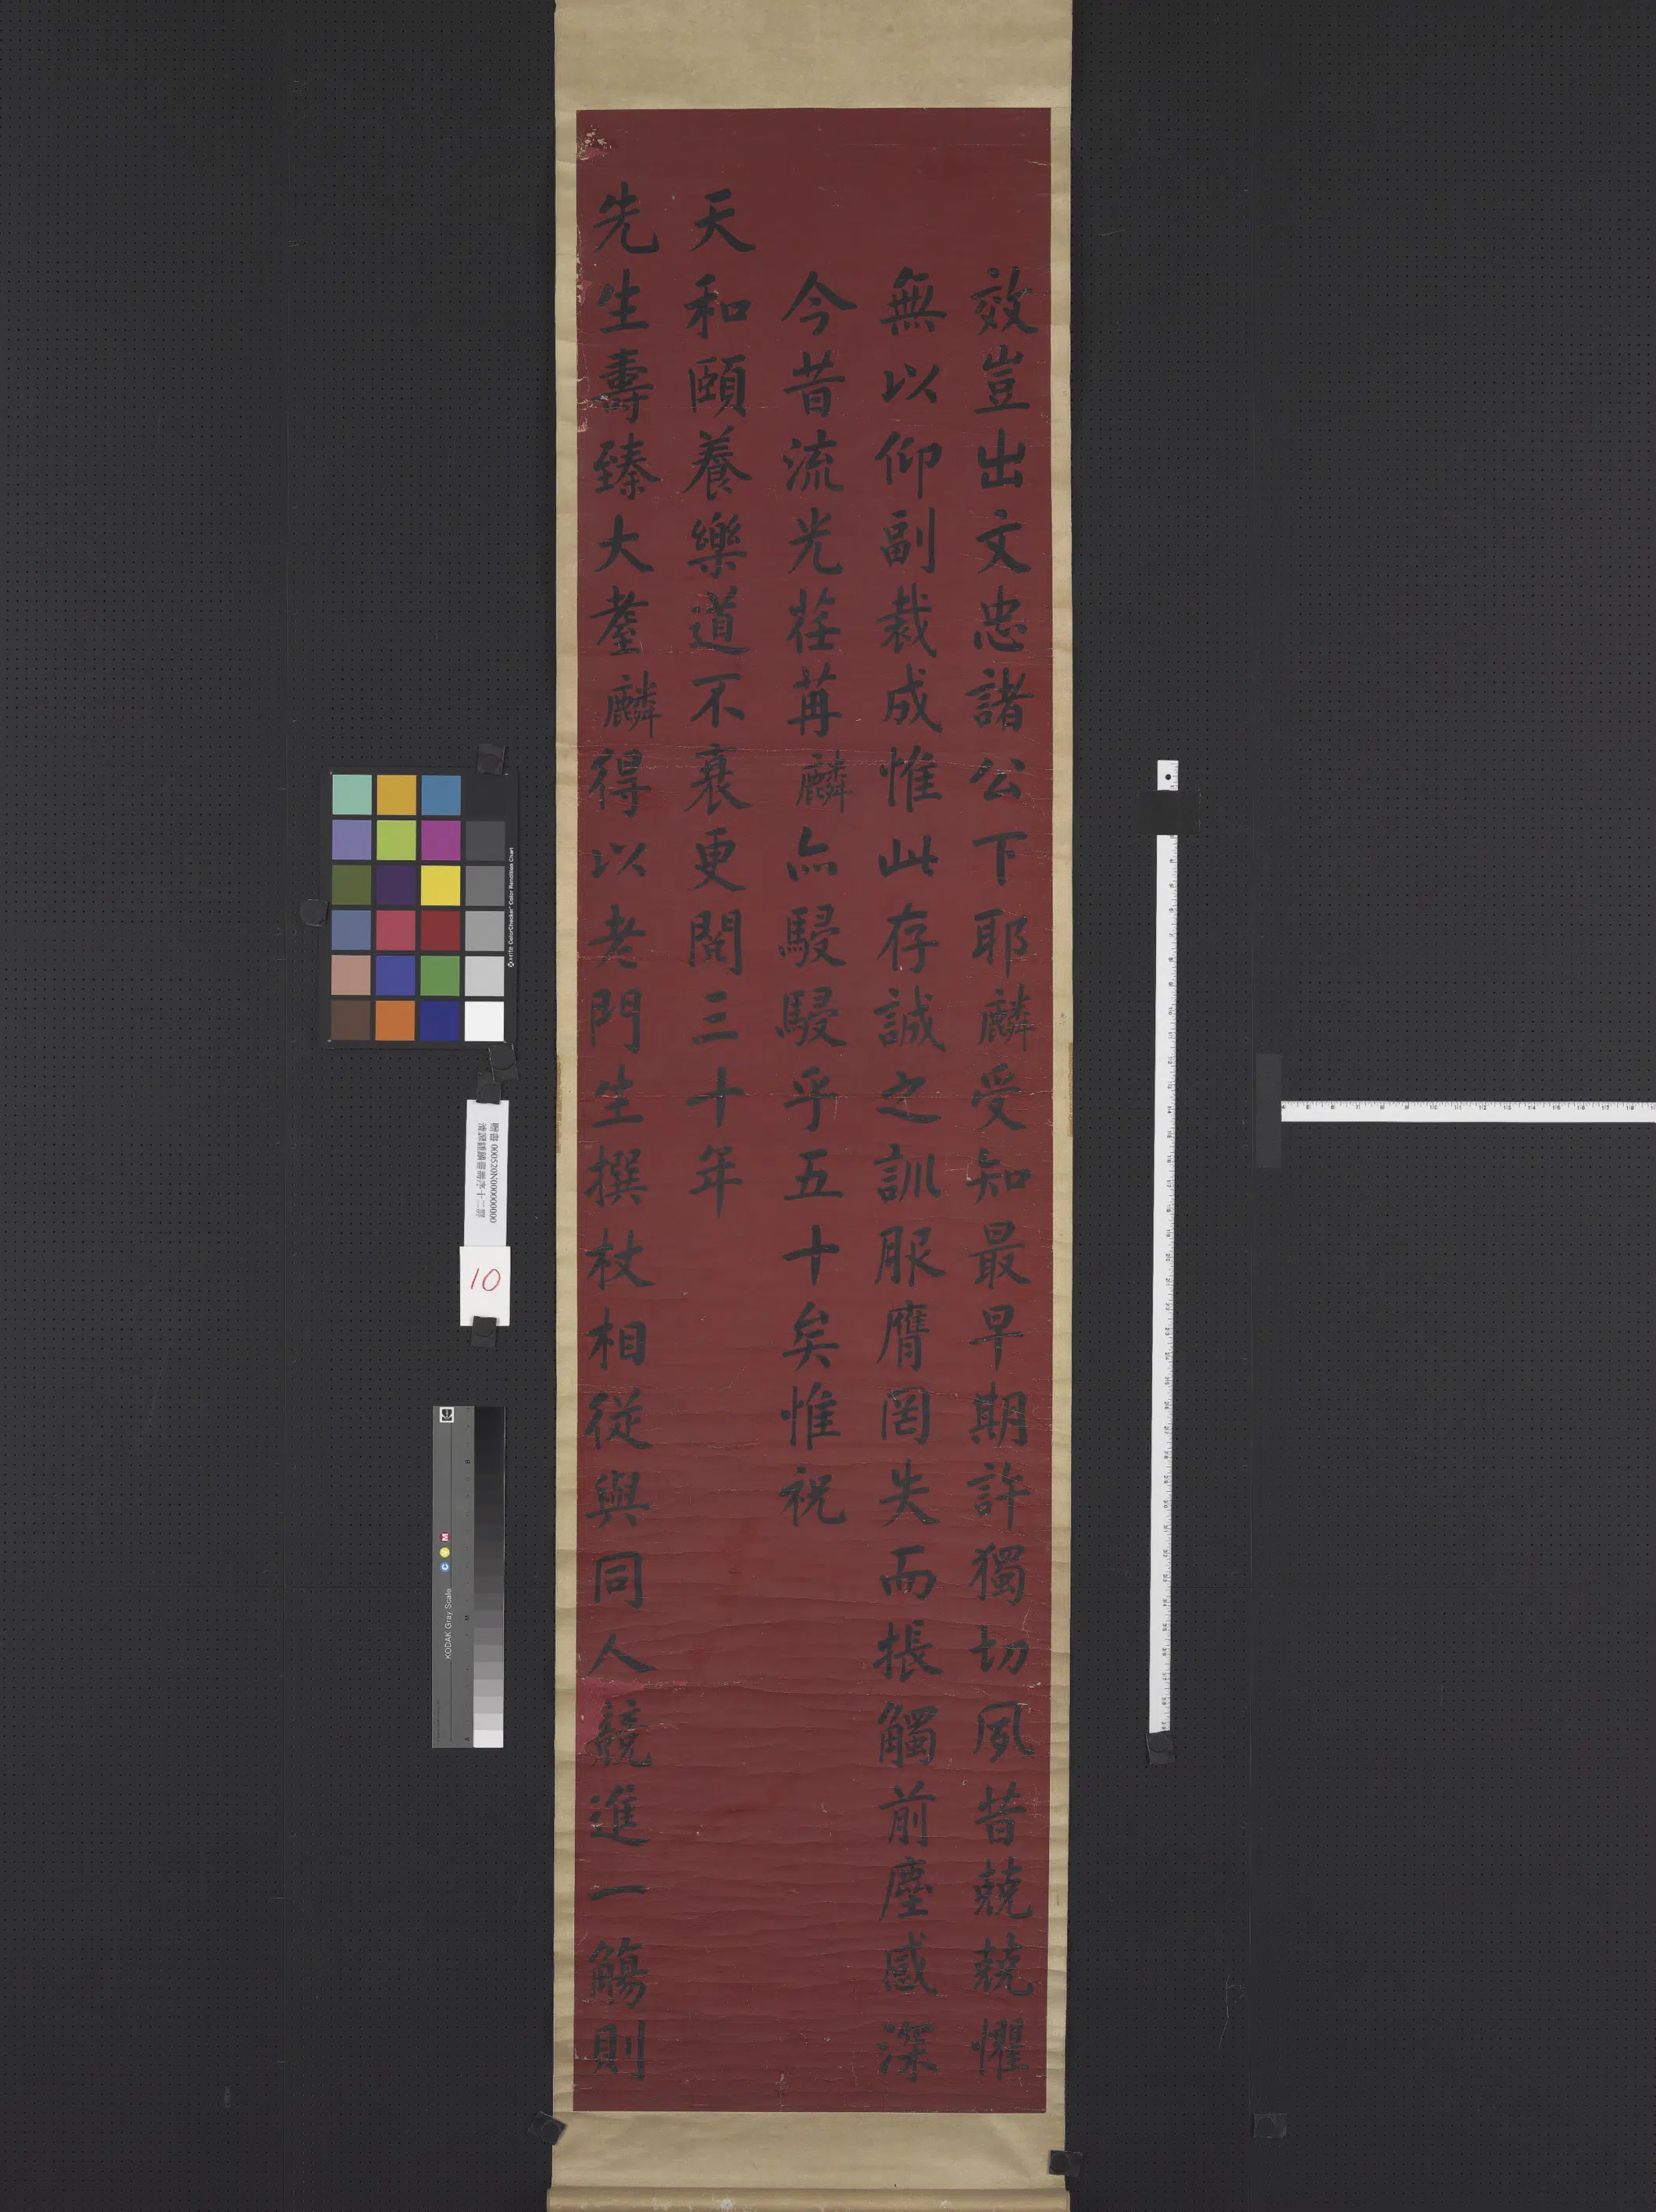 效豈出文忠諸公下耶麟受知最早期許獨切夙昔兢兢懼
無以仰副裁成惟此存誠之訓服膺罔失而振觸前塵感深
今昔流光荏苒麟亦駸駸乎五十矣惟祝
天和頤養樂道不衰更閱三十年
先生壽臻大耋麟得以老門生撰杖相從與同人競進一觴則
贈書 000520N000000000
10
KODAK Gray Scale
C Y M
x-rite ColorChecker Color Rendition Chart